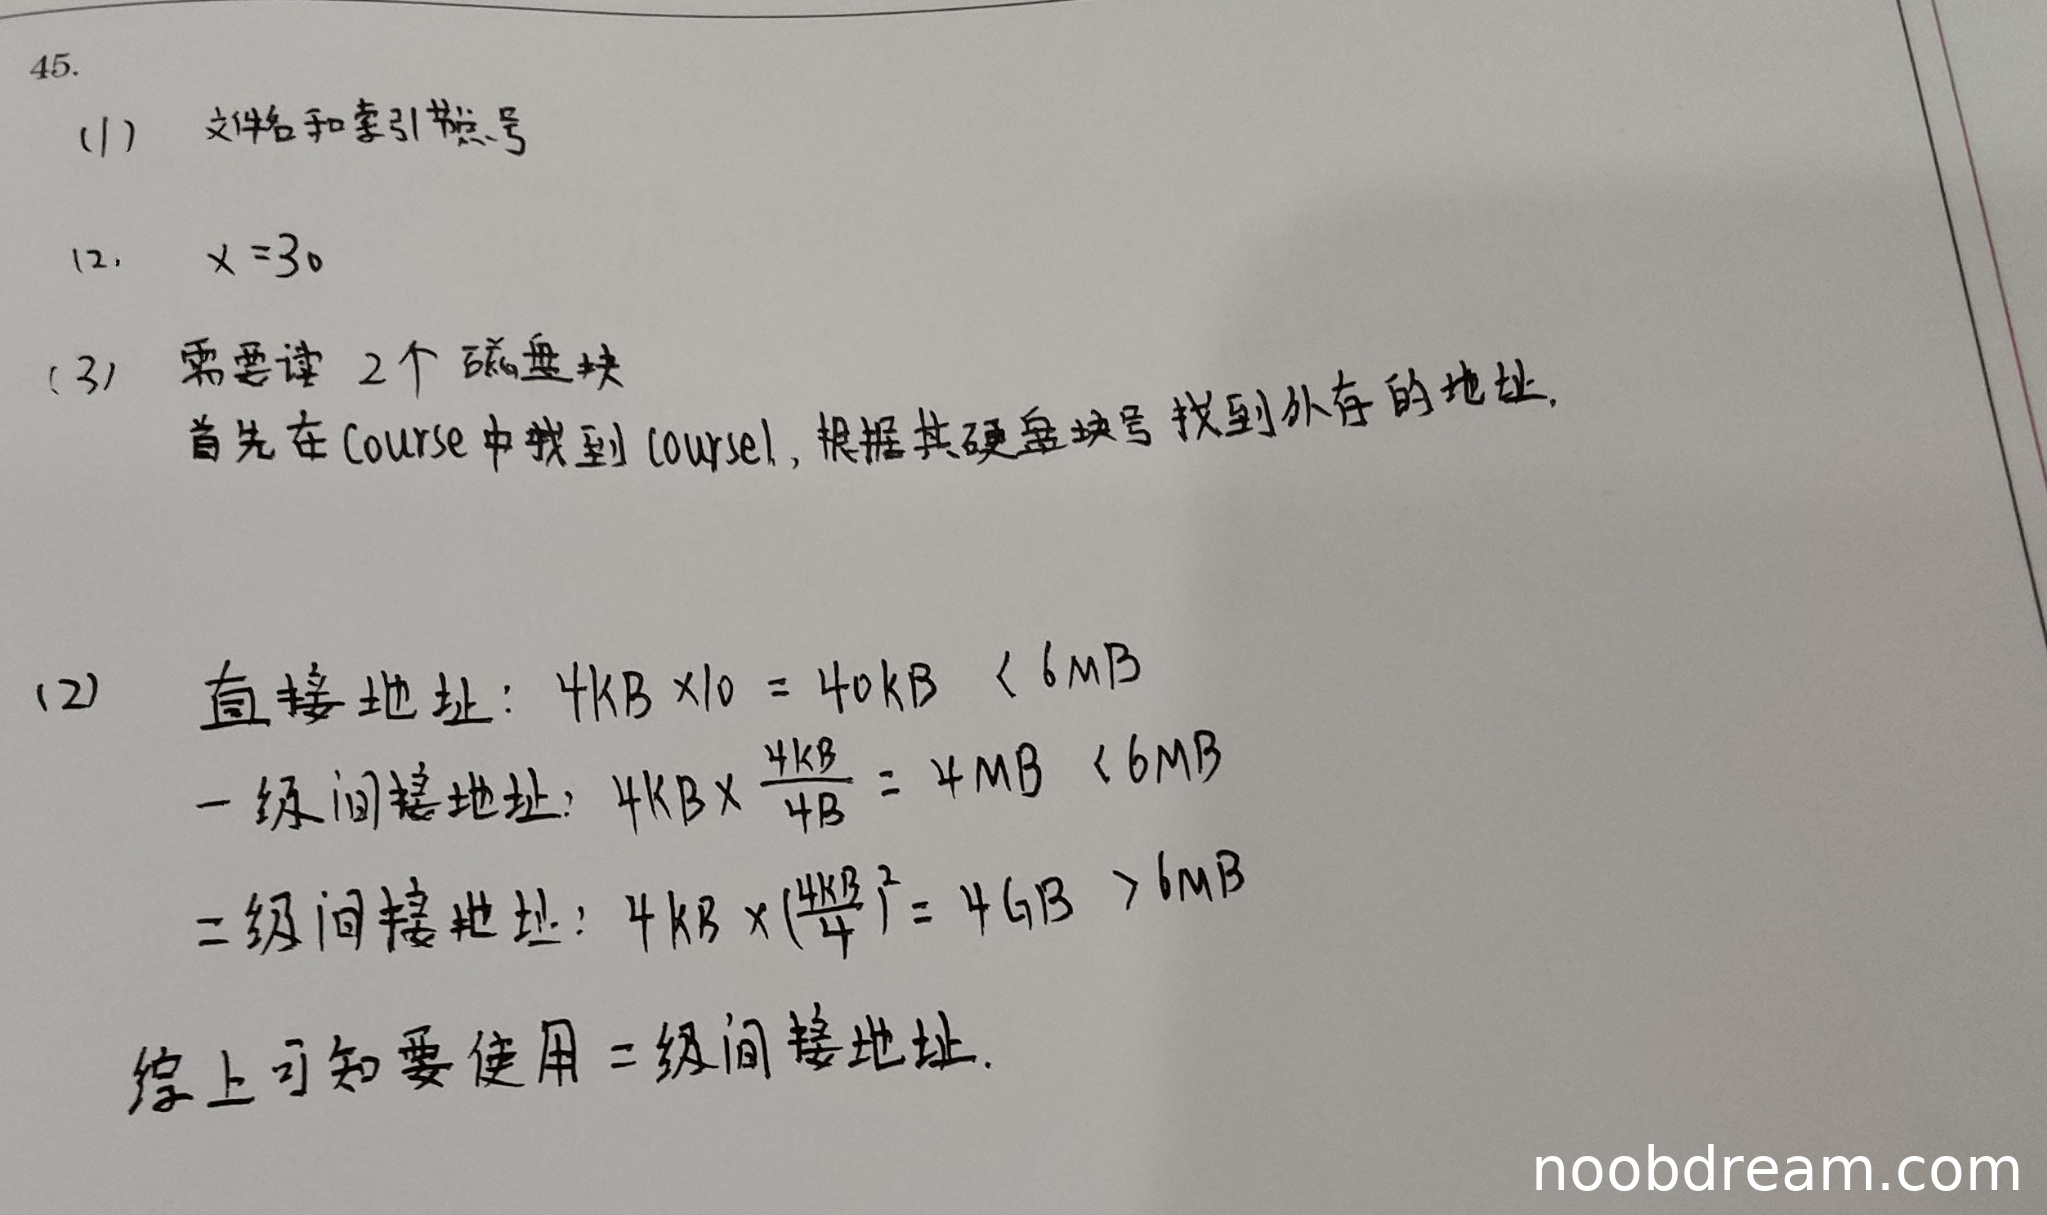 45.
(1) 文件名和索引节点号
12. x=30
(3) 需要读 2个 磁盘块
首先在course中找到course1,根据其硬盘块号找到外存的地址.
(2) 直接地址: 4KB×10 = 40KB < 6MB
一级间接地址: 4KB× 4KB/4B = 4MB < 6MB
二级间接地址: 4KB×(4KB/4)² = 4GB > 6MB
综上可知要使用二级间接地址.
noobdream.com